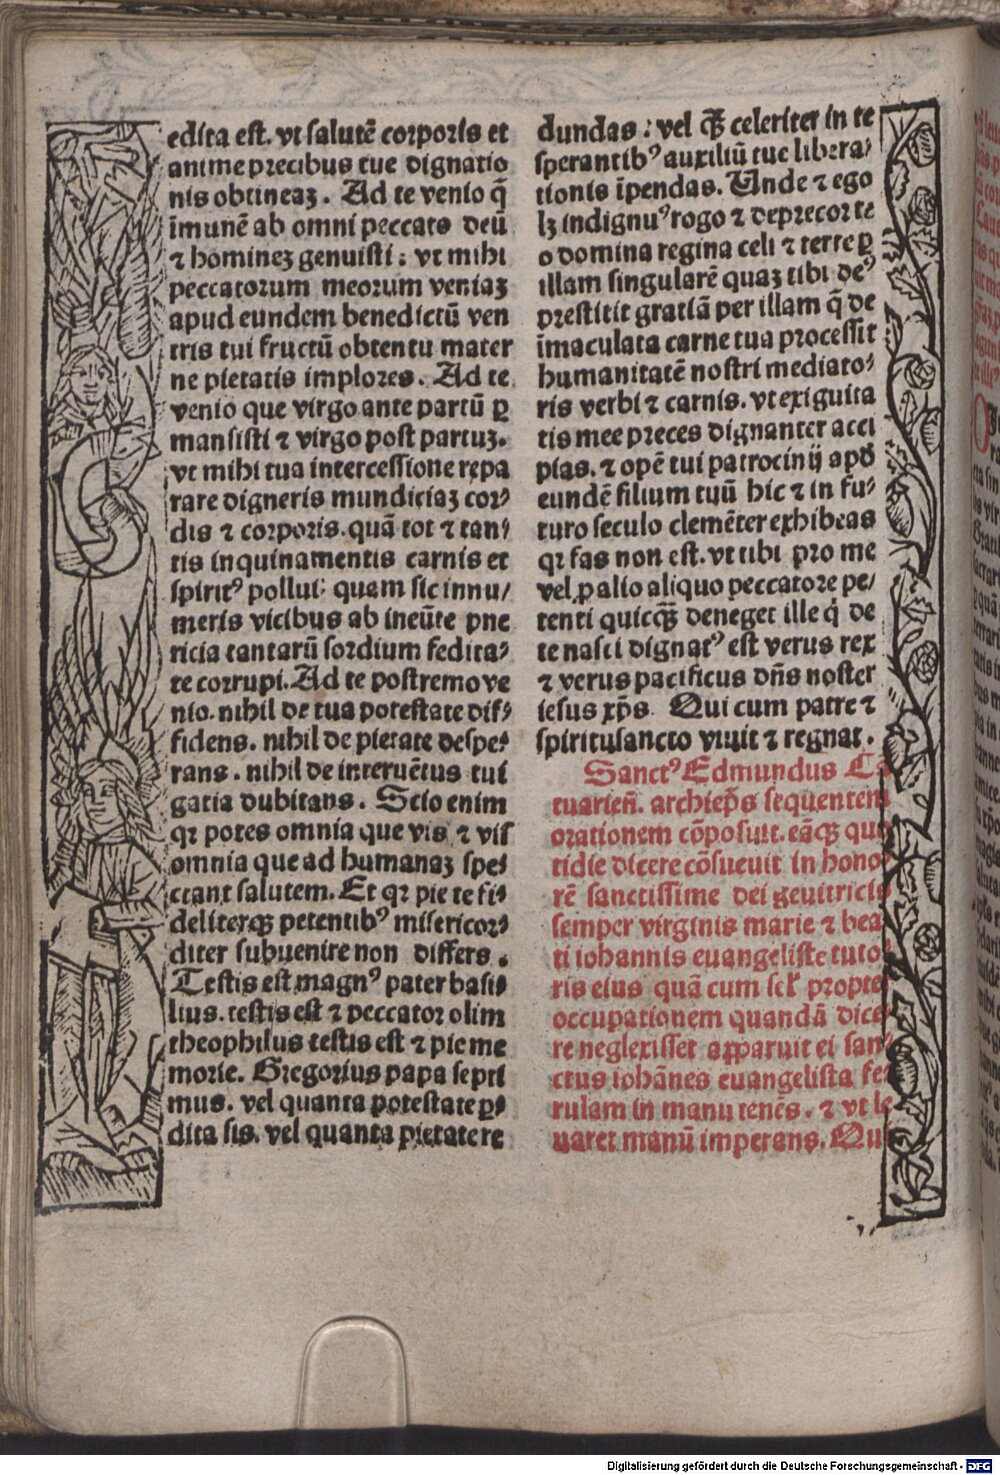 edita est. vt salutē corporis et
anime precibus tue dignatio
nis obtineaꝫ. Ad te venio q̄
īmunē ab omni peccato deū
⁊ homineꝫ genuisti: vt mihi
peccatorum meorum veniaꝫ
apud eundem benedictū ven
tris tui fructū obtentu mater
ne pietatis implores. Ad te
venio que virgo ante partū ꝑ
mansisti ⁊ virgo post partuꝫ.
vt mihi tua intercessione repa
rare digneris mundiciaꝫ cor⸗
dis ⁊ corporis. quā tot ⁊ tan⸗
tis inquinamentis carnis et
spiritꝰ pollui: quam sic innu/
meris vicibus ab ineūte pue
ricia tantarū sordium fedita⸗
te corrupi. Ad te postremo ve
nio. nihil de tua potestate dif⸗
fidens. nihil de pietate despe⸗
rans. nihil de interuētus tui
gatia dubitans. Scio enim
qꝛ potes omnia que vis ⁊ vis
omnia que ad humanaꝫ spe⸗
ctant salutem. Et qꝛ pie te fi⸗
deliterqꝫ petentibꝰ misericor⸗
diter subuenire non differs.
Testis est magnꝰ pater basi⸗
lius. testis est ⁊ peccator olim
theophilus testis est ⁊ pie me
morie. Gregorius papa septi
mus. vel quanta potestate p̄⸗
dita sis. vel quanta pietate re
dundas: vel qꝫ̄ celeriter in te
sperantibꝰ auxiliū tue libera⸗
tionis īpendas. Unde ⁊ ego
lꝫ indignuꝰ rogo ⁊ deprecor te
o domina regina celi ⁊ terre ꝑ
illam singularē quaꝫ tibi deꝰ
prestitit gratiā per illam q̄ de
īmaculata carne tua processit
humanitatē nostri mediato⸗
ris verbi ⁊ carnis. vt exiguita
tis mee preces dignanter acci
pias. ⁊ opē tui patrocinij apđ
eundē filium tuū hic ⁊ in fu⸗
turo seculo clemēter exhibeas
qꝛ fas non est. vt tibi pro me
vel ꝓ alio aliquo peccatore pe/
tenti quicqꝫ̄ deneget ille q́ de
te nasci dignatꝰ est verus rex
⁊ verus pacificus dn̄s noster
iesus xp̄s. Qui cum patre ⁊
spiritusancto viuit ⁊ regnat.
Sanctꝰ Edmundus Cā
tuarieñ. archiep̄s sequentem
orationem cōposuit. eāqꝫ quo
tidie dicere cōsueuit in hono⸗
rē sanctissime dei genitricis
semper virginis marie ⁊ bea
ti iohannis euangeliste tuto
ris eius quā cum sel̄ propter
occupationem quandā dice⸗
re neglexisset apparuit ei san⸗
ctus iohānes euangelista fe⸗
rulam in manu tenēs. ⁊ vt le
uaret manū imperans. Qui
Digitalisierung gefördert durch die Deutsche Forschungsgemeinschaft - DFG